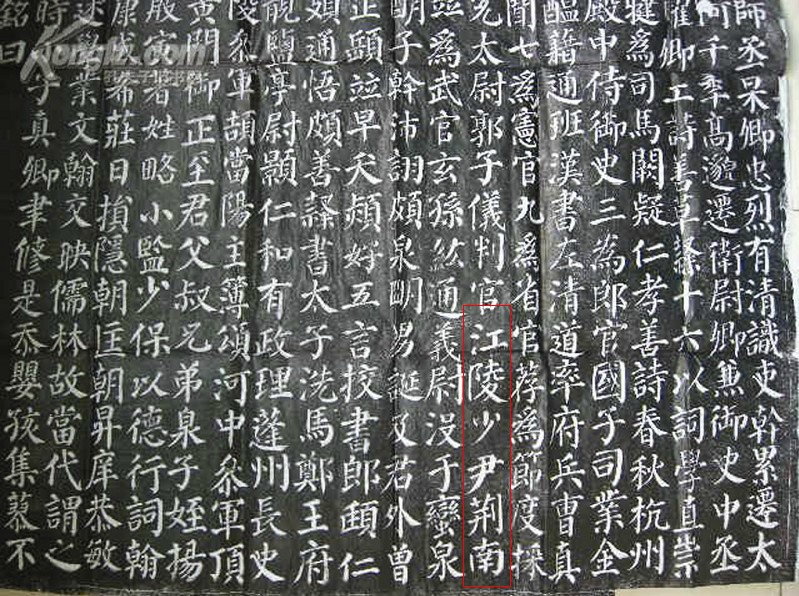 師丞杲卿忠烈有清識吏幹累遷太
何千年高邈遷衛尉卿兼御史中丞
曜卿工詩善草隸十六以詞學直崇
犍為司馬闕疑仁孝善詩春秋杭州
殿中侍御史三為郎官國子司業金
醞藉通班漢書左清道率府兵曹真
聞七為憲官九為省官荐為節度採
允太尉郭子儀判官江陵少尹荊南
並為武官玄孫紘通義尉沒于蠻泉
明子幹沛詡頗泉明男誕及君外曾
正顗並早夭熲好五言挍書郎頲仁
頍通悟頗善隸書太子洗馬鄭王府
靚鹽亭尉顥仁和有政理蓬州長史
參軍頡當陽主簿頌河中參軍頂
黃門御正至君父叔兄弟臮子姪揚
殷寅著姓略小監少保以德行詞翰
康成希莊日損隱朝匡朝昇庠恭敏
述學業文翰交映儒林故當代謂之
時小子真卿聿脩是忝嬰孩集蓼不
銘曰